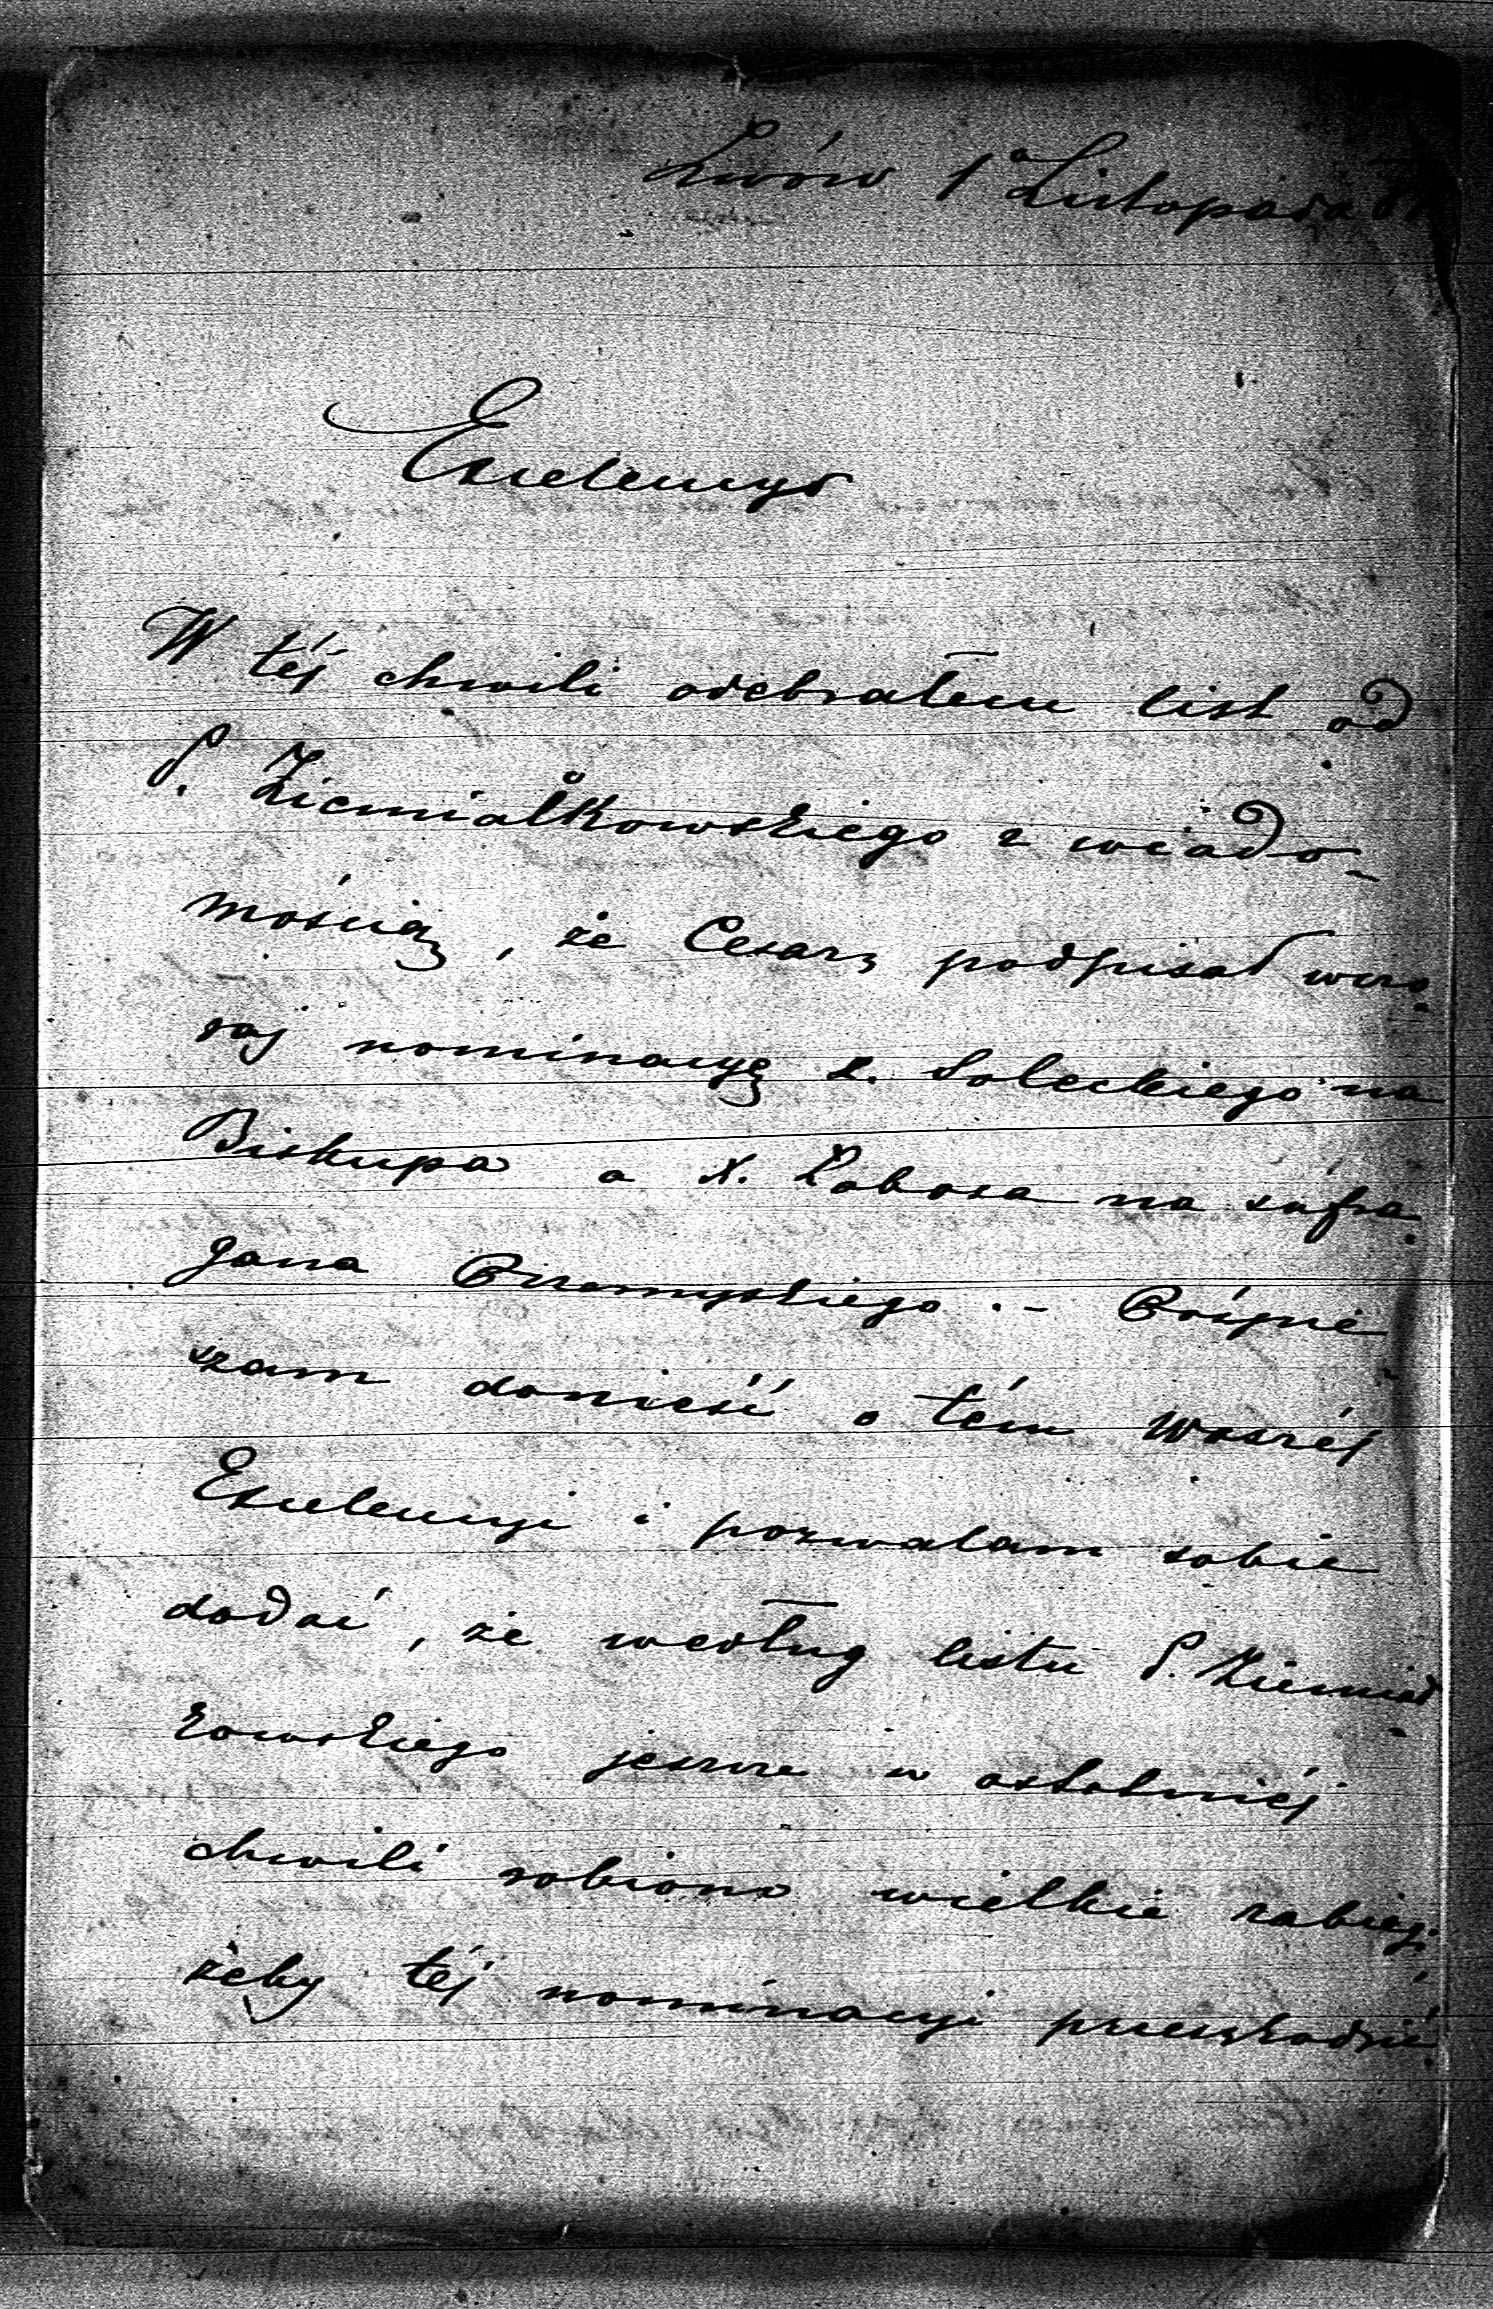 Lwów 1 Listopada 81
Excelencyo
W téj chwili odebrałem list od
P. Ziemiałkowskiego z wiado-
mością, że Cesarz podpisał wczo-
raj nominacyę x. Soleckiego na
Biskupa a X. Łobosa na sufra-
gana Przemyskiego. - Pośpie-
szam donieść o tém Waszéj
Excelencyi i pozwalam sobie
dodać, że według listu P. Ziemiał-
kowskiego jeszcze w ostatniéj
chwili robiono wielkie zabiegi
żeby téj nominacyi przeszkodzić.